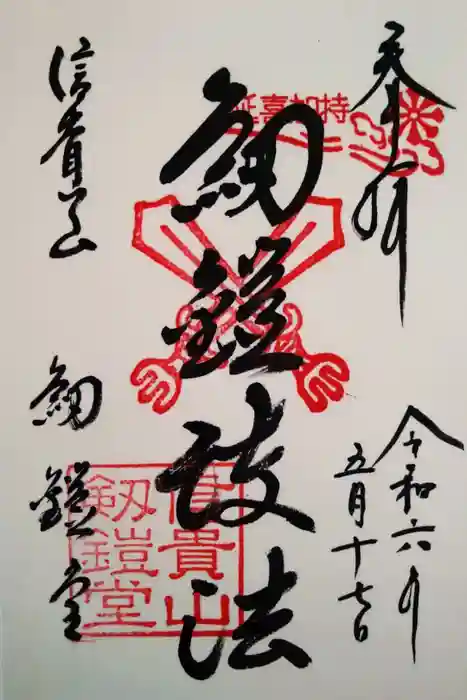 奉拝
令和六年
五月十七日
剱鎧護法
信貴山
剱鎧堂
延喜加持
信貴山
剱鎧堂